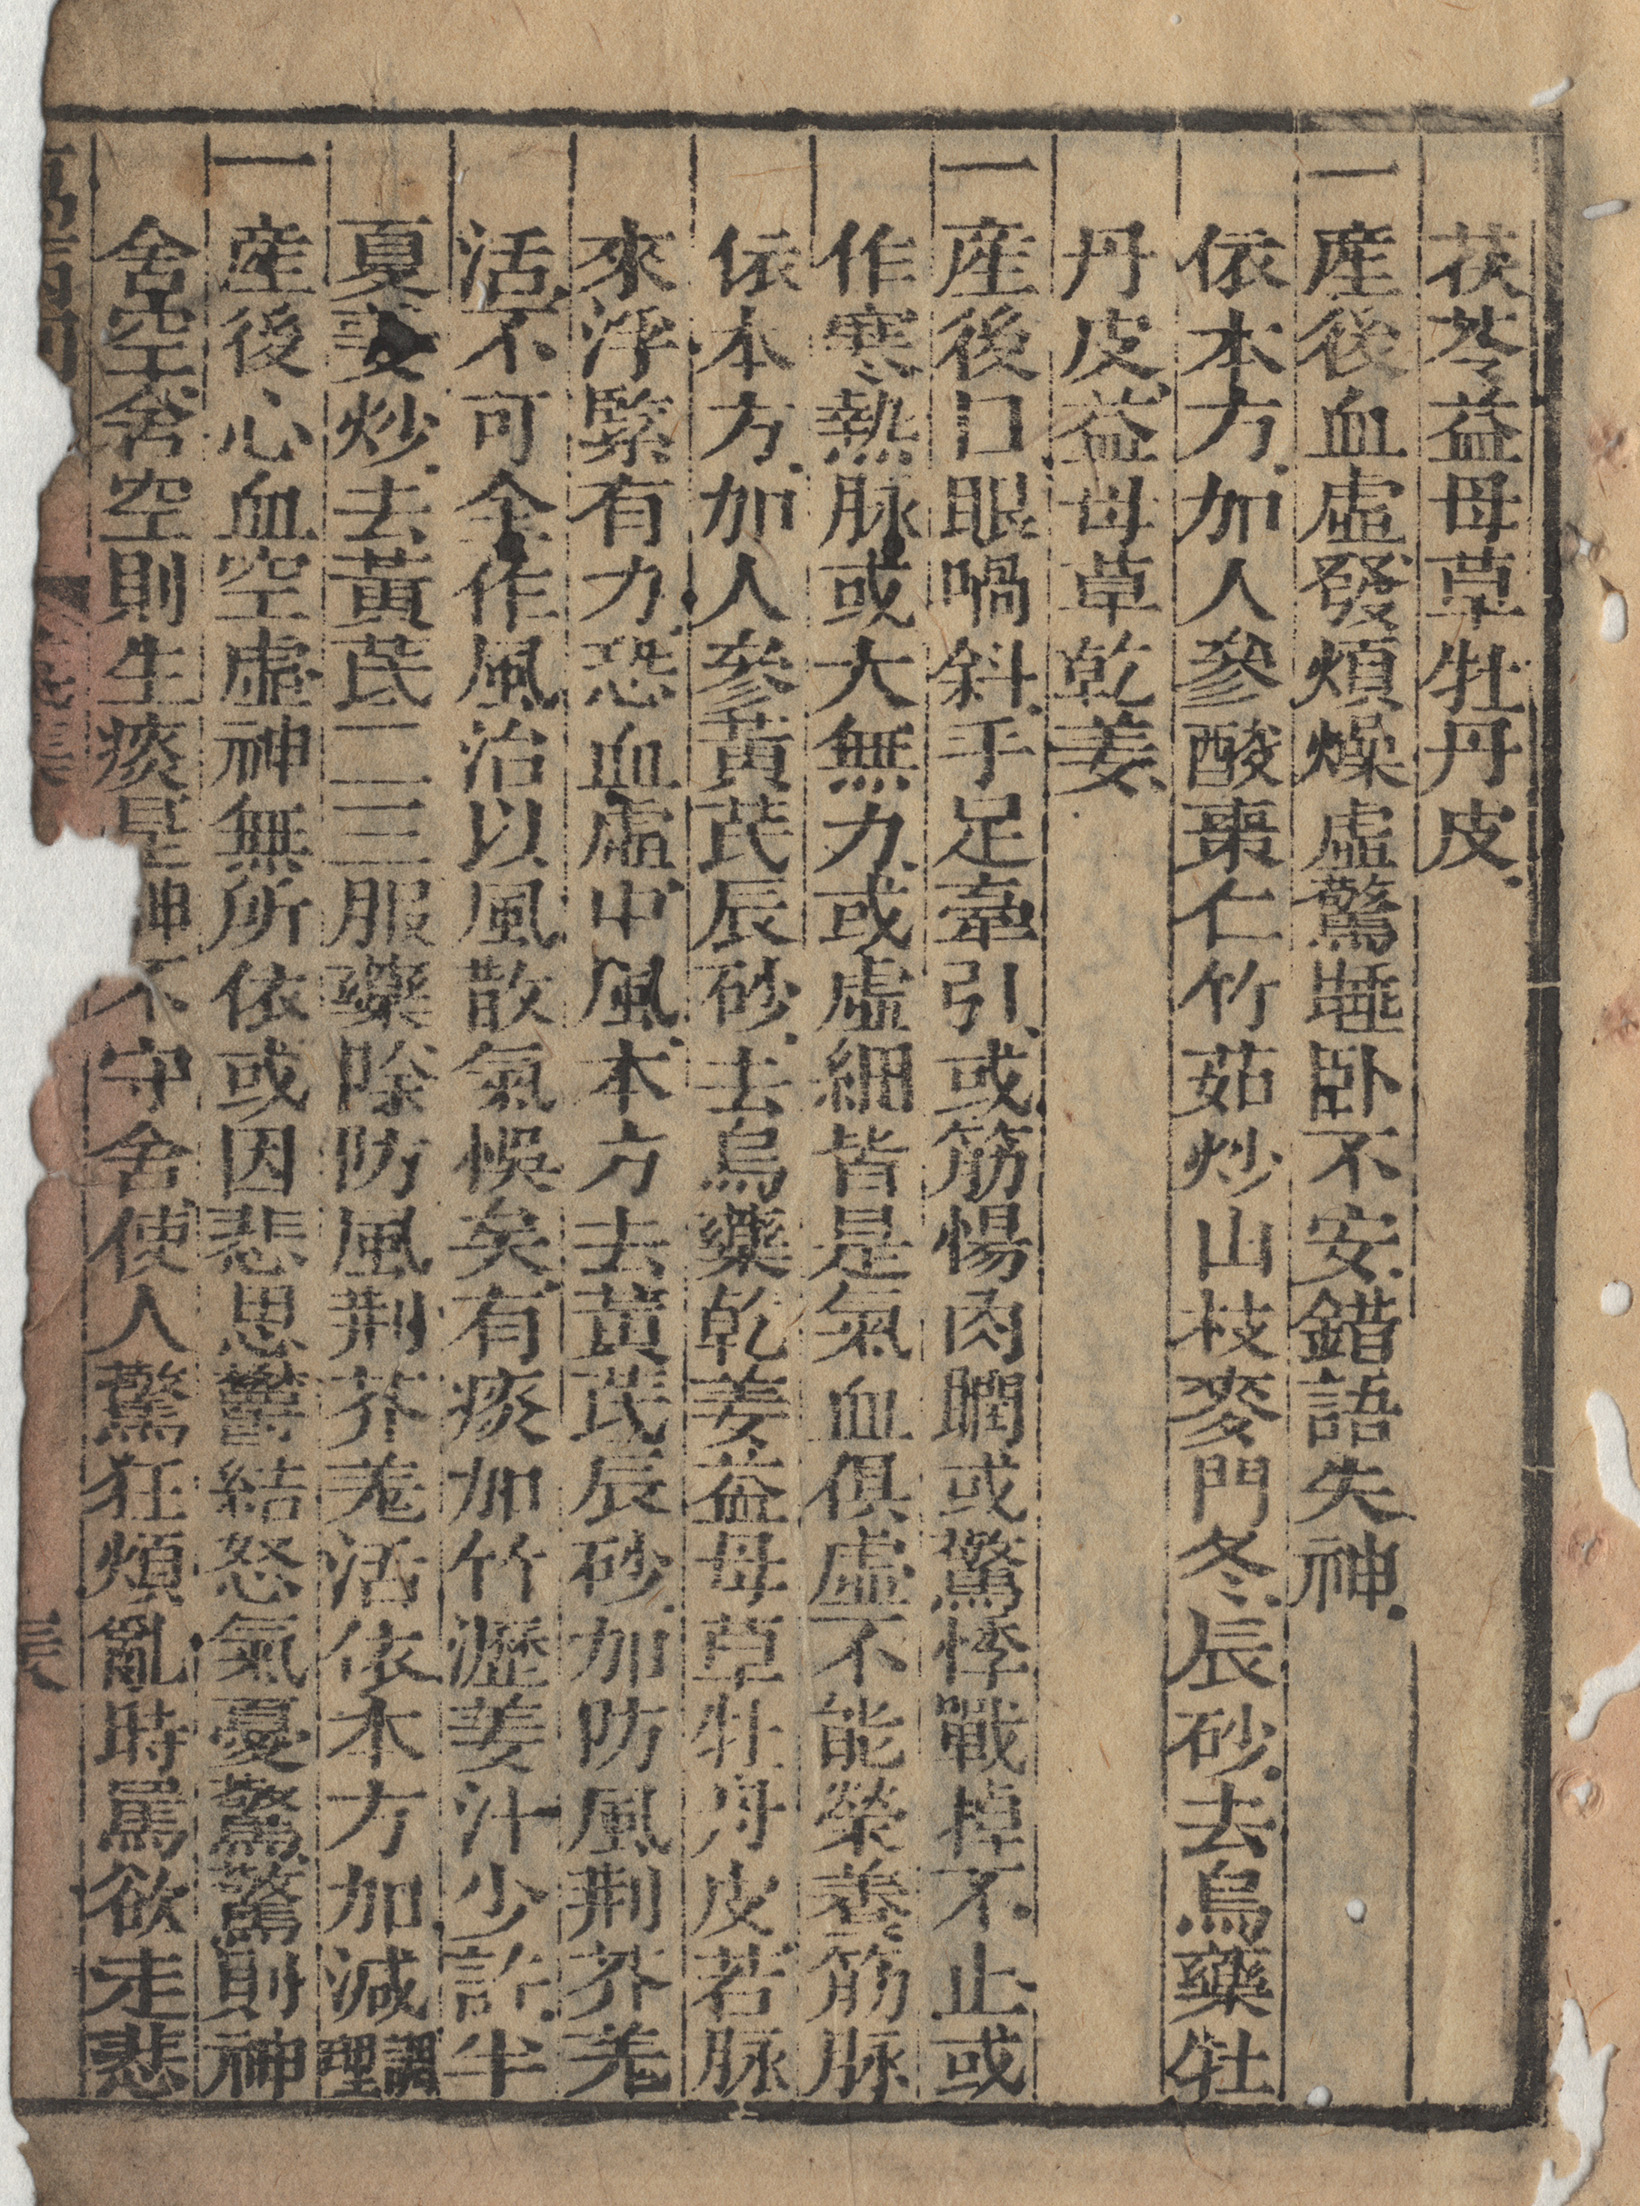 茯苓益母草牡丹皮
一產後血虛發煩燥虛驚睡卧不安錯語失神
依本方加人參酸棗仁竹茹炒山枝麥門冬辰砂去烏藥牡
丹皮益母草乾姜
一產後口眼喎斜手足牽引或筋惕肉瞤或驚悸戰掉不止或
作寒熱脉或大無力或虛細皆是氣血俱虛不能榮養筋脉
依本方加人參黃芪辰砂去烏藥乾姜益母草牡丹皮若脉
來浮緊有力恐血虛中風本方去黃芪辰砂加防風荆芥羌
活不可全作風治以風散氣悞矣有痰加竹瀝姜汁少許半
夏姜炒去黃芪二三服藥除防風荆芥羌活依本方加減調理
一產後心血空虛神無所依或因悲思欝結怒氣憂驚驚則神
舍空舍空則生痰是神不守舍使人驚狂煩亂時罵欲走悲